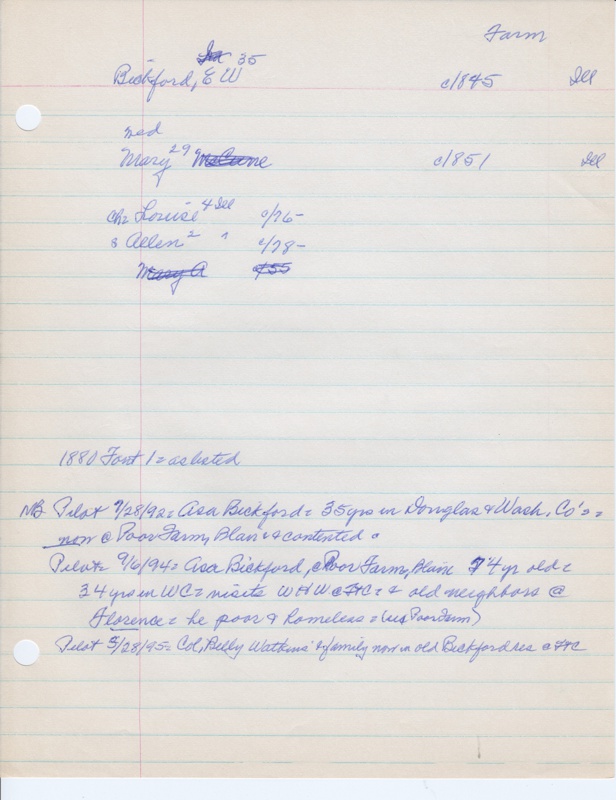 Farm
35
Bickford, E W c/845 Ill
md
Mary 29 McCune c/851 Ill
ch= Louise 4 Ill c/76-
& Allen 2 " c/78-
Mary A c/55
1880 Font 1 = as listed
NB Pilot 7/28/92 = Asa Bickford = 35 yrs in Douglas & Wash. Co's =
now @ Poor Farm, Blair & contented.
Pilot = 9/6/94 = Asa Bickford, @ Poor Farm, Blair 74 yr old =
34 yrs in WC = visits W H W @ Ft C = & old neighbors @
Florence = he poor & homeless = (us Poor Farm)
Pilot 3/28/95 = Col, Billy Watkins' & family now in old Bickford res @ Ft C